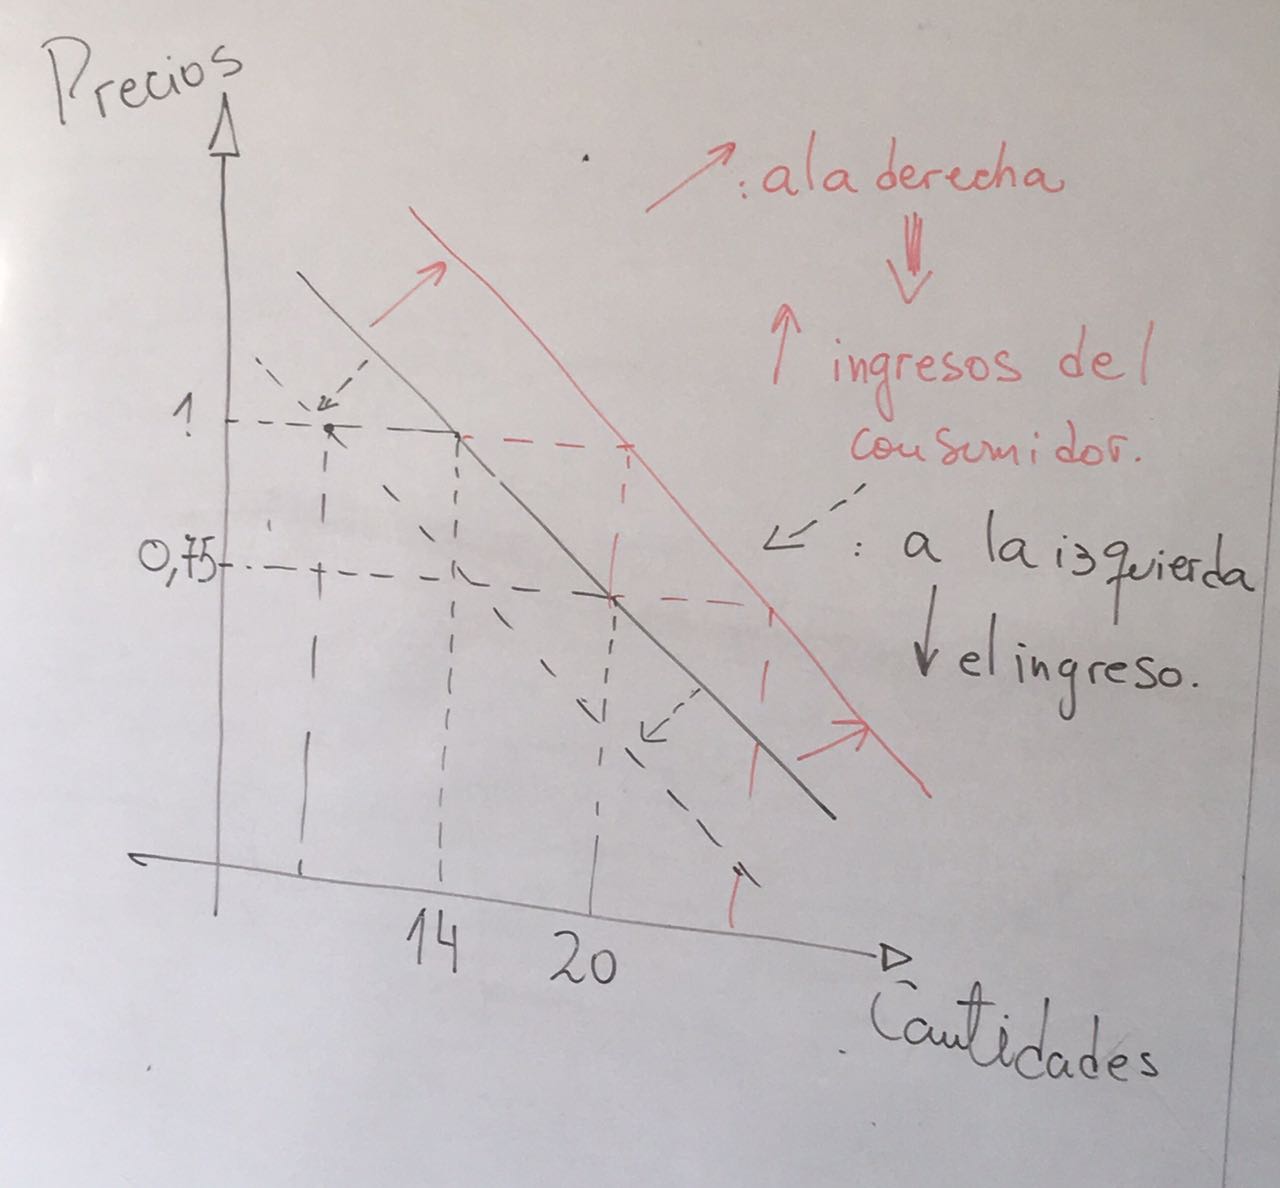 Precios
: a la derecha
ingresos del
consumidor.
: a la izquierda
el ingreso.
1
0,75
14
20
Cantidades